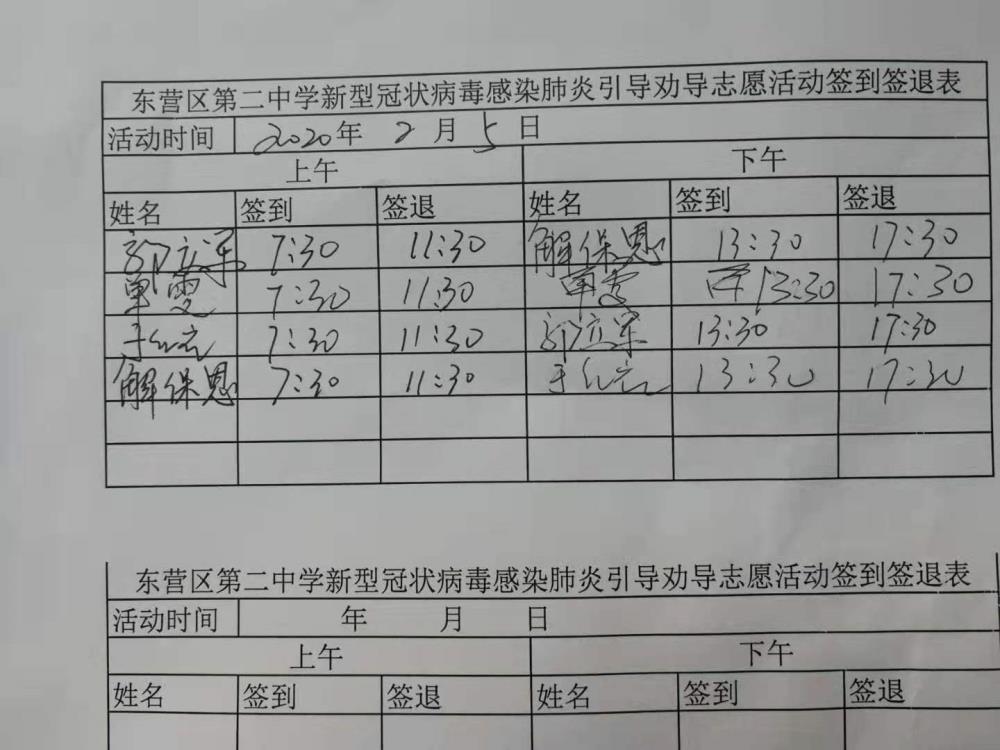 东营区第二中学新型冠状病毒感染肺炎引导劝导志愿活动签到签退表
活动时间 2020年 2 月 5 日
上午 下午
姓名 签到 签退 姓名 签到 签退
7:30 11:30 解保恩 13:30 17:30
7:30 11:30 13:30 17:30
7:30 11:30 13:30 17:30
解保恩 7:30 11:30 13:30 17:30
东营区第二中学新型冠状病毒感染肺炎引导劝导志愿活动签到签退表
活动时间 年 月 日
上午 下午
姓名 签到 签退 姓名 签到 签退